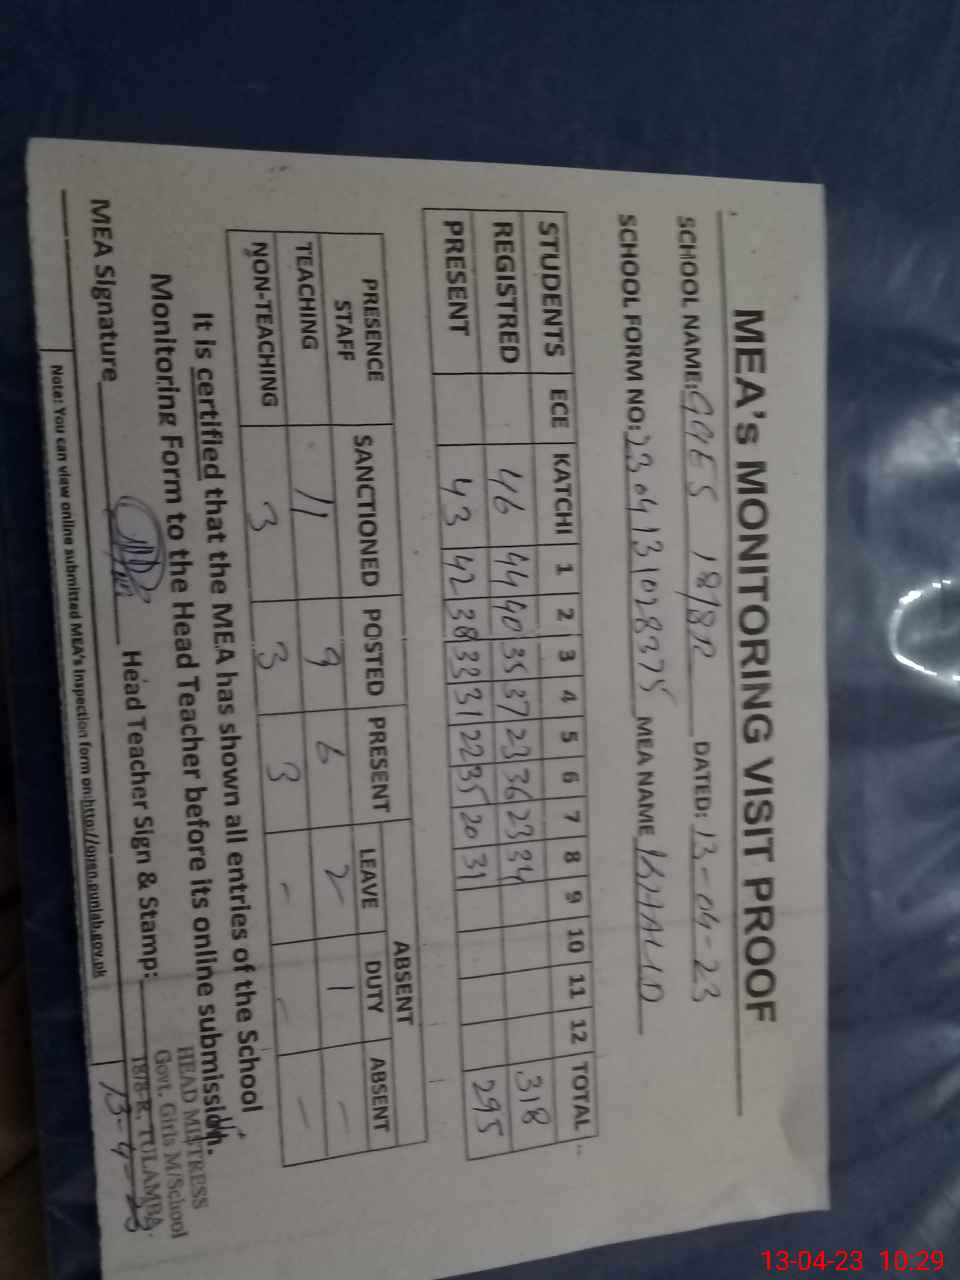 MEA's MONITORING VISIT PROOF
SCHOOL NAME: GGES 18/8R DATED: 13-04-23
SCHOOL FORM NO: 2304131028375 MEA NAME KHALID
STUDENTS ECE KATCHI 1 2 3 4 5 6 7 8 9 10 11 12 TOTAL
REGISTRED 46 44 40 35 37 23 36 23 34 318
PRESENT 43 42 38 33 31 22 35 20 31 295
PRESENCE STAFF SANCTIONED POSTED PRESENT ABSENT
LEAVE DUTY ABSENT
TEACHING 11 9 6 2 1 -
NON-TEACHING 3 3 3 - - -
It is certified that the MEA has shown all entries of the School
Monitoring Form to the Head Teacher before its online submission.
MEA Signature Head Teacher Sign & Stamp:
HEAD MISTRESS
Govt. Girls M/School
18/8-R, TULAMBA.
13-4-23
Note: You can view online submitted MEA's inspection form on:http://open.punjab.gov.pk
13-04-23 10:29